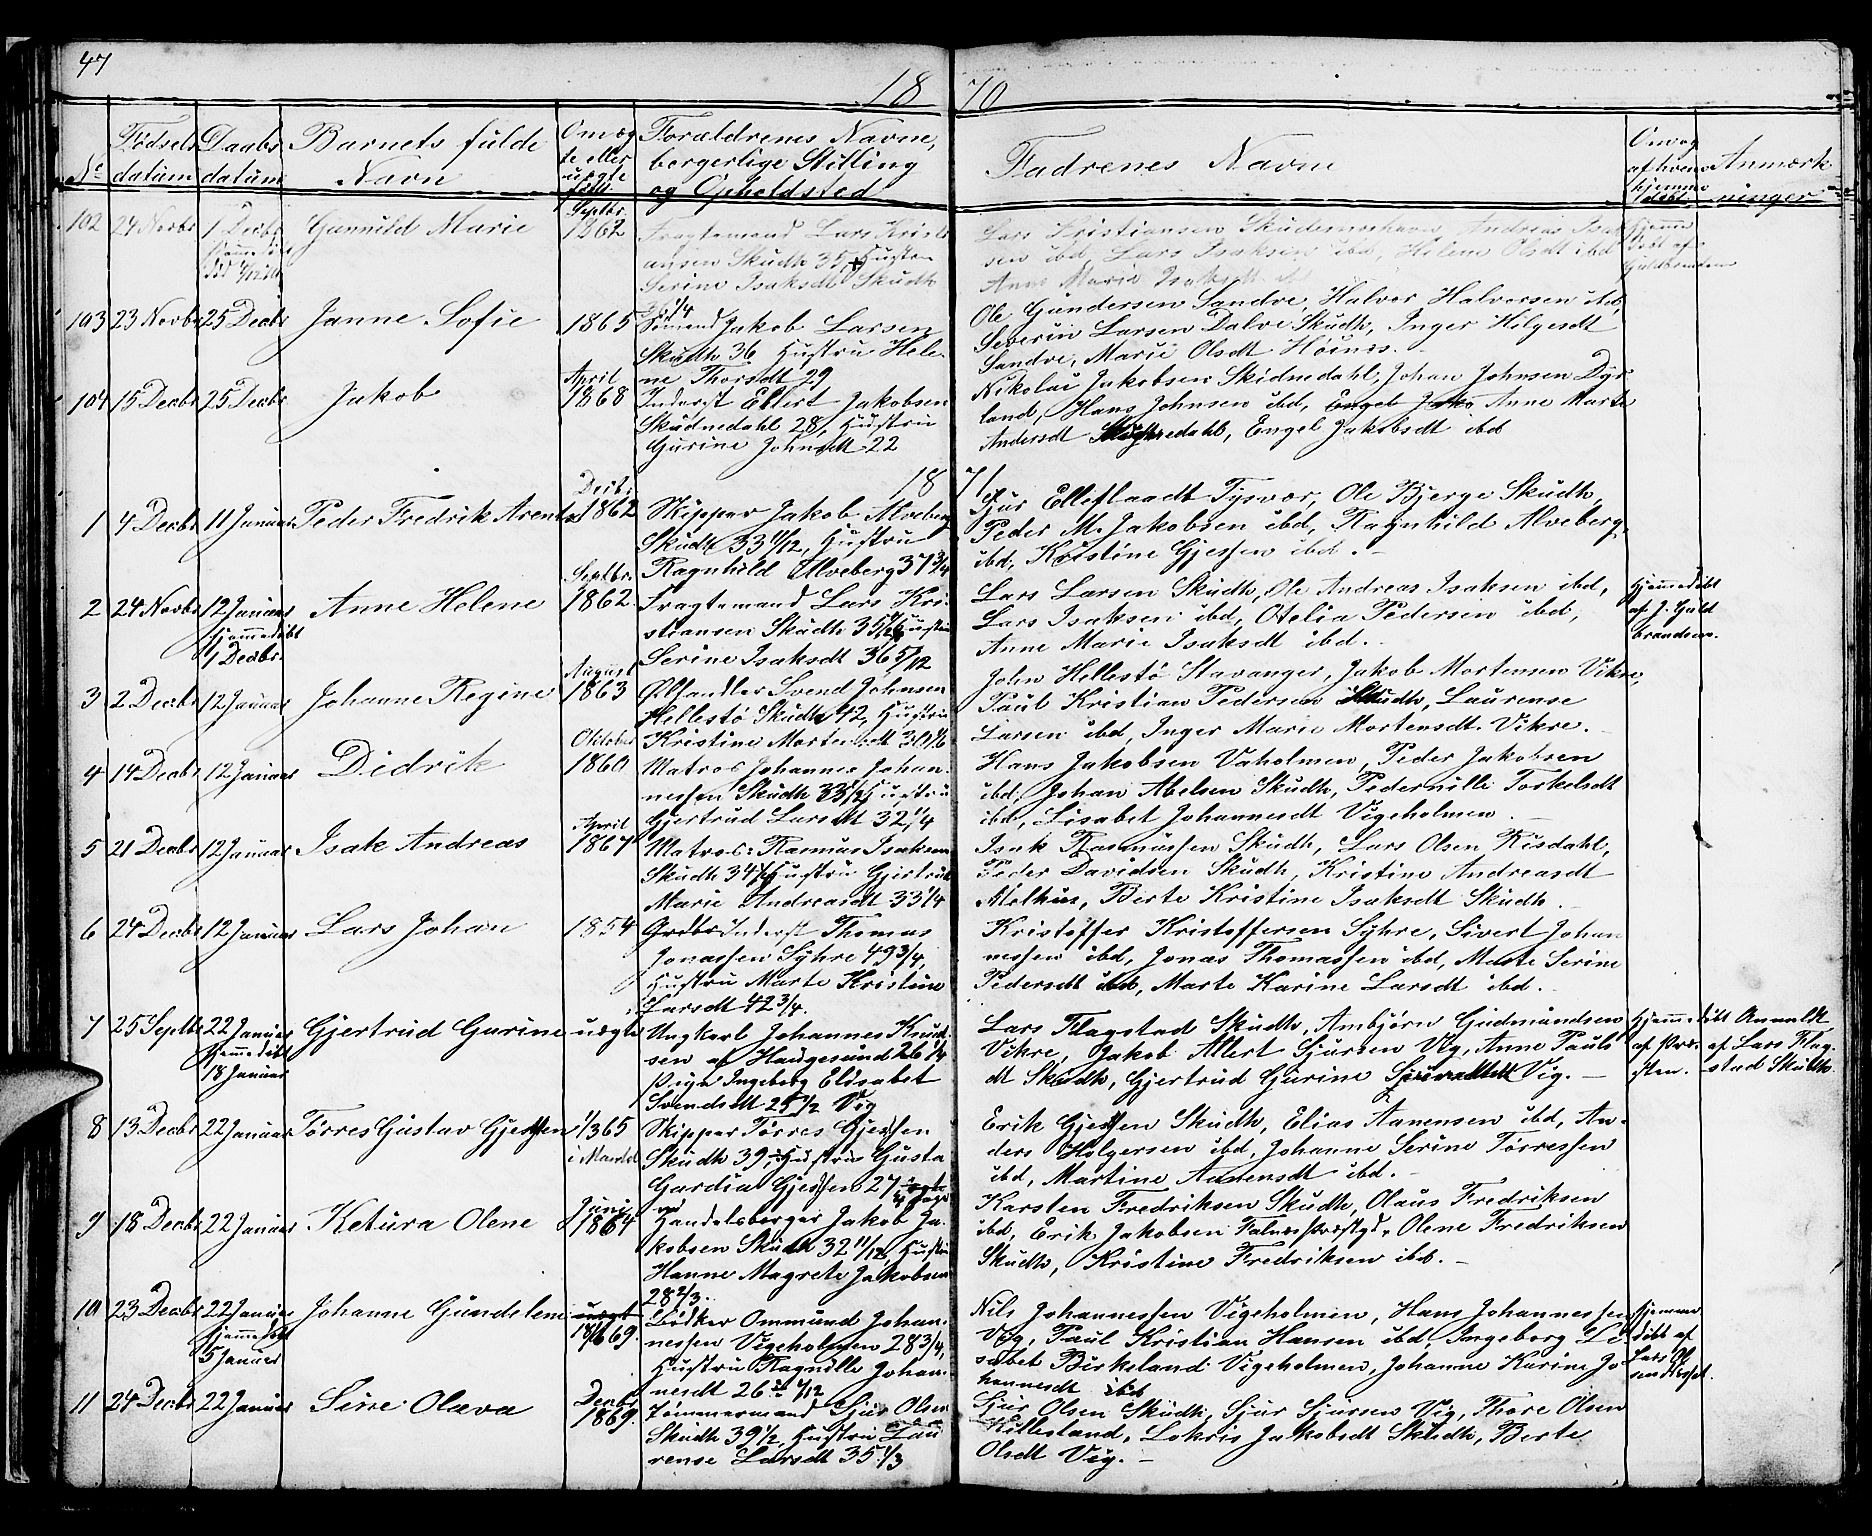 47
18 70
No
Fødsels datum
Daabs datum
Barnets fulde Navn
Om ægte eller uægte født
Forældrenes Navne, borgerlige Stilling og Opholdsted
Fadrenes Navne
Om og af hvem hjemme døbt
Anmærkninger
102 24 Novbr 1 Decbr Gunnild Marie Septbr. 1862
Fragtemand Lars Kristi
ansen Skudh 35, Hustru
Serine Isaksdt Skudh
36 1/4
Lars Kristiansen Skudesneshavn, Andreas Isak
sen ibd, Lars Isaksen ibd, Helene Olsdt ibd
Anne Marie Isaksdt
103 23 Novbr 25 Decbr Janne Sofie 1865
Sømand Jakob Larsen
Skudh 36 Hustru Hele-
ne Thorsdt 29
Ole Gundersen Sandve, Halvor Halvorsen ibd,
Severin Larsen Dalve Skudh, Inger Helgesdt
Sandve, Marie Olsdt Høines.
104 15 Decbr 25 Decbr Jakob April 1868
Inderst Ellert Jakobsen
Skudnedahl 28, Hustru
Gurine Johnsdt 22
Nikolai Jakobsen Skidnedahl, Johan Johnsen Dyr
land, Hans Johnsen ibd, Engel Jako Anne Marte
Andersdt Skudnedahl, Engel Jakobsdt ibd
18 71
1 4 Decbr 11 Januar Peder Fredrik Arentz Decbr. 1862
Skipper Jakob Alveberg
Skudh 33 11/12, Hustru
Ragnhild Alveberg 37 3/4
Sjur Elleflaadt Tysvær, Ole Bjerge Skudh,
Peder M. Jakobsen ibd, Ragnhild Alveberg,
ibd, Kristine Gjessen ibd.
2 24 Novbr 12 Januar Hjemmedøbt 1 Decbr. Anne Helene Septbr. 1862
Fragtemand Lars Kri-
stiansen Skudh 35 Hustru
Serine Isaksdt 36 5/12
Lars Larsen Skudh, Ole Andreas Isaksen ibd,
Lars Isaksen ibd, Otelia Pedersen ibd,
Anne Marie Isaksdt ibd.
Hjemmedøbt
af J. Guld
brandsen.
3 2 Decbr 12 Januar Johanne Regine August 1863
Ølhandler Svend Johnsen
Hellestø Skudh 42, Hustru
Kristine Mortensdt 30 1/6
John Hellestø Stavanger, Jakob Mortensen Vikre,
Paul Kristian Pedersen Skudh, Laurense
Larsen ibd, Inger Marie Mortensdt. Vikre.
4 14 Decbr 12 Januar Didrik Oktober 1860
Matros Johannes Johan-
nessen Skudh 33 1/2 Hustru
Gjertrud Larsdt 32 1/4
Hans Jakobsen Vaholmen, Peder Jakobsen
ibd, Johan Abelsen Skudh, Pedernille Torkelsdt
ibd, Lisabet Johannesdt Vigeholmen.
5 21 Decbr 12 Januar Isak Andreas April 1867
Matros: Rasmus Isaksen
Skudh 34 Hustru Gjertrud
Marie Andreasdt 33 1/4
Isak Rasmussen Skudh, Lars Olsen Risdahl,
Peder Davidsen Skudh, Kristine Andreasdt
Mølhus, Berte Kristine Isaksdt Skudh.
6 24 Decbr 12 Januar Lars Johan 1854
Inderst Thomas
Jonassen Syhre 49 3/4,
Hustru Marte Kristine
Larsdt 42 3/4.
Kristoffer Kristoffersen Syhre, Sivert Johan
nessen ibd, Jonas Thomassen ibd, Marte Serine
Pedersdt ibd, Marte Karine Larsdt ibd.
7 25 Septbr 22 Januar Hjemmedøbt 18 Januar Gjertrud Gurine uægte
Ungkarl Johannes Knud-
sen af Haugesund 26 1/4
Pige Ingeberg Elisabet
Svendsdt 25 1/2 Vig
Lars Flagstad Skudh, Ambjørn Gudmundsen
Vikre, Jakob Allert Sjursen Vig, Anne Pauls
dt Skudh, Gjertrud Gurine Vig.
Hjemmedøbt
af Præ-
sten.
Anmeldt
af Lars Flag-
stad Skudh.
8 13 Decbr 22 Januar Tørres Gustav Gjessen 1/3 65 i Mandal
Skipper Tørres Gjessen
Skudh 39, Hustru Gusta
Gardia Gjessen 27,
Erik Gjessen Skudh, Elias Aanensen ibd, An-
ders Holgersen ibd, Johanne Serine Tørressen
ibd, Martine Aanensdt ibd.
9 18 Decbr 22 Januar Ketura Olene Juni 1864
Handelsborger Jakob Ja-
kobsen Skudh 32 11/12, Hustru
Hanne Magrete Jakobsen
28 2/3.
Karsten Fredriksen Skudh, Olaus Fredriksen
ibd, Erik Jakobsen Falnæs Præstgd, Olene Fredriksen
Skudh, Kristine Fredriksen ibd.
10 23 Decbr 22 Januar Hjemmedøbt 5 Januar Johanne Gundelene uægt 18/6 69.
Bødker Ommund Johan-
nessen Vigeholmen 28 3/4,
Hustru Ragnille Johan-
nesdt 26
Nils Johannessen Vigeholmen, Hans Johannessen
Vig, Paul Kristian Hansen ibd, Ingeborg Li
sabet Birkeland Vigeholmen, Johanne Karine Jo
hannesdt ibd
Hjemme
døbt af
Lars Ol
sen
11 24 Decbr 22 Januar Sine Olava Decbr 1869.
Tømmermand Sjur Olsen
Skudh 39 1/2, Hustru Lau
rense Larsdt 35 1/3
Sjur Olsen Skudh, Sjur Sjursen Vig, Thore Olsen
Killesland, Lokris Jakobsdt Skudh, Berte
Olsdt Vig.